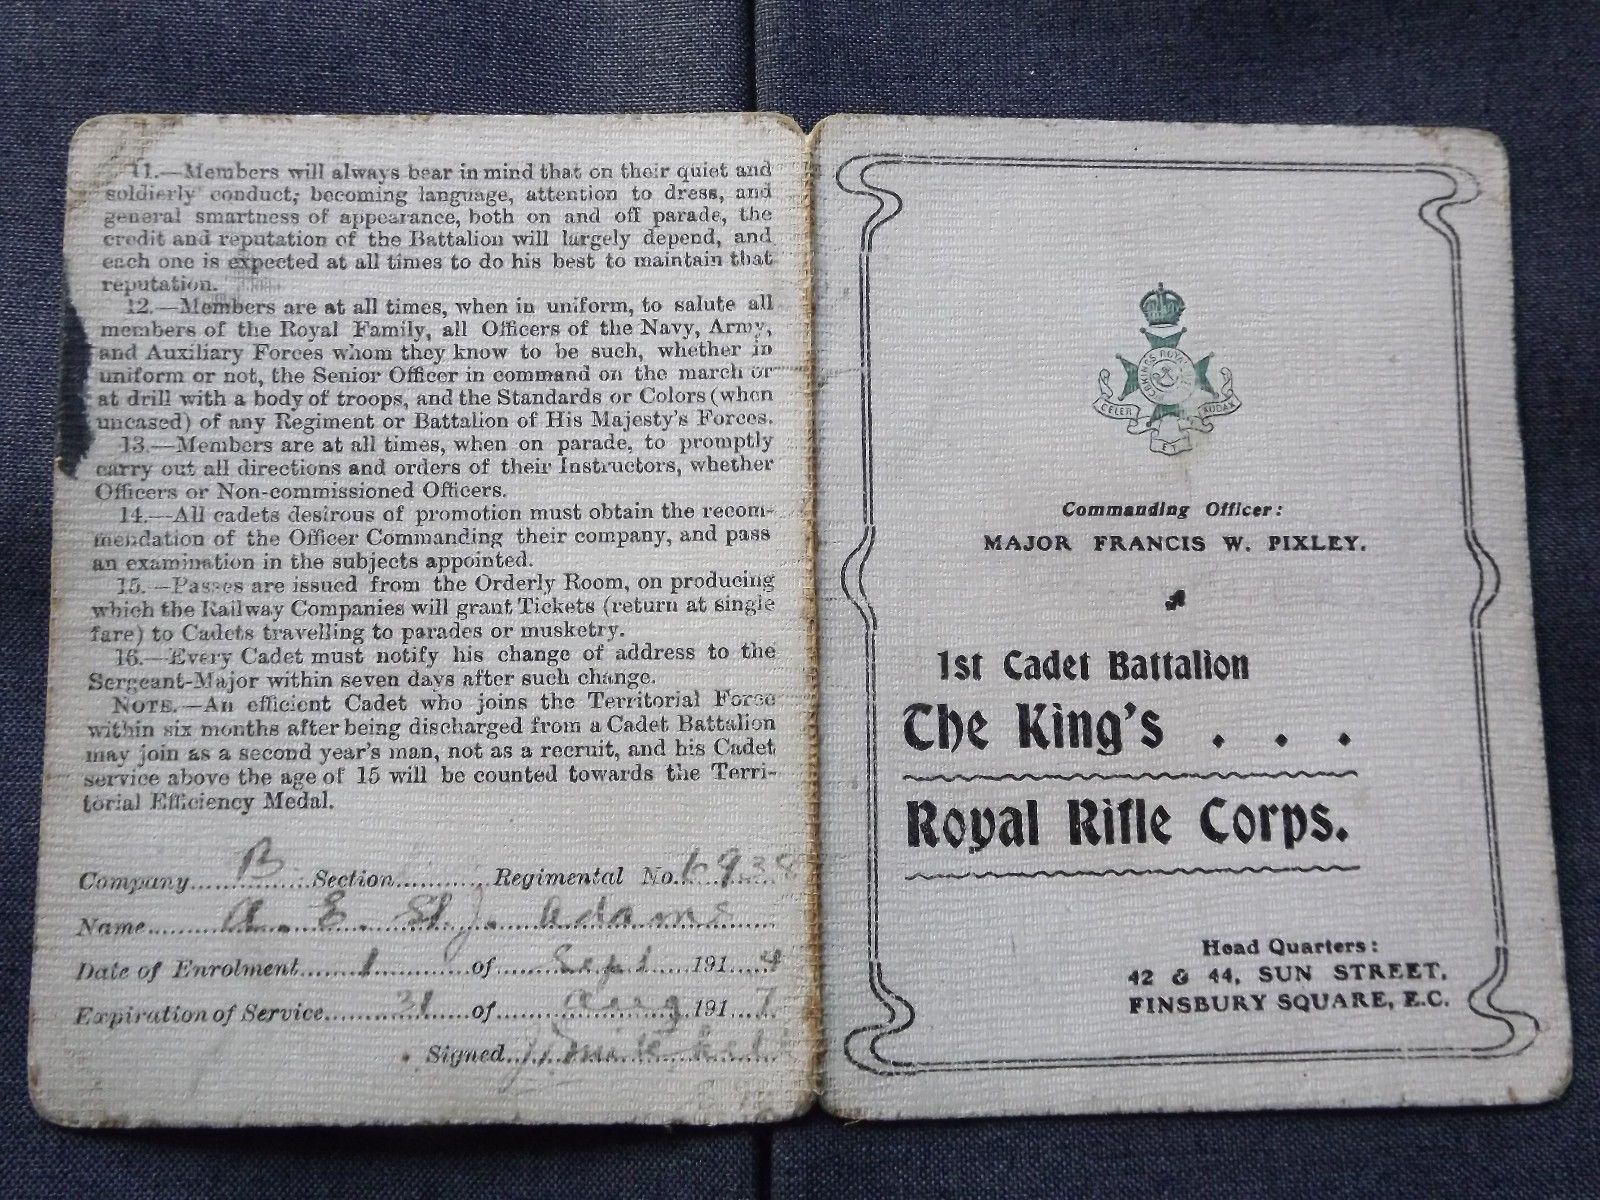 11.—Members will always bear in mind that on their quiet and
soldierly conduct; becoming language, attention to dress, and
general smartness of appearance, both on and off parade, the
credit and reputation of the Battalion will largely depend, and
each one is expected at all times to do his best to maintain that
reputation.
12.—Members are at all times, when in uniform, to salute all
members of the Royal Family, all Officers of the Navy, Army,
and Auxiliary Forces whom they know to be such, whether in
uniform or not, the Senior Officer in command on the march or
at drill with a body of troops, and the Standards or Colors (when
uncased) of any Regiment or Battalion of His Majesty's Forces.
13.—Members are at all times, when on parade, to promptly
carry out all directions and orders of their Instructors, whether
Officers or Non-commissioned Officers.
14.—All cadets desirous of promotion must obtain the recom-
mendation of the Officer Commanding their company, and pass
an examination in the subjects appointed.
15.—Passes are issued from the Orderly Room, on producing
which the Railway Companies will grant Tickets (return at single
fare) to Cadets travelling to parades or musketry.
16.—Every Cadet must notify his change of address to the
Sergeant-Major within seven days after such change.
NOTE.—An efficient Cadet who joins the Territorial Force
within six months after being discharged from a Cadet Battalion
may join as a second year's man, not as a recruit, and his Cadet
service above the age of 15 will be counted towards the Terri-
torial Efficiency Medal.
Company B Section Regimental No. 6938
Name A. E. St J. Adams
Date of Enrolment 1 of Sept 1914
Expiration of Service 31 of Aug 1917
Signed
THE KINGS ROYAL RIFLE
CELER ET AUDAX
Commanding Officer:
MAJOR FRANCIS W. PIXLEY.
1st Cadet Battalion
The King's . . .
Royal Rifle Corps.
Head Quarters:
42 & 44, SUN STREET,
FINSBURY SQUARE, E.C.